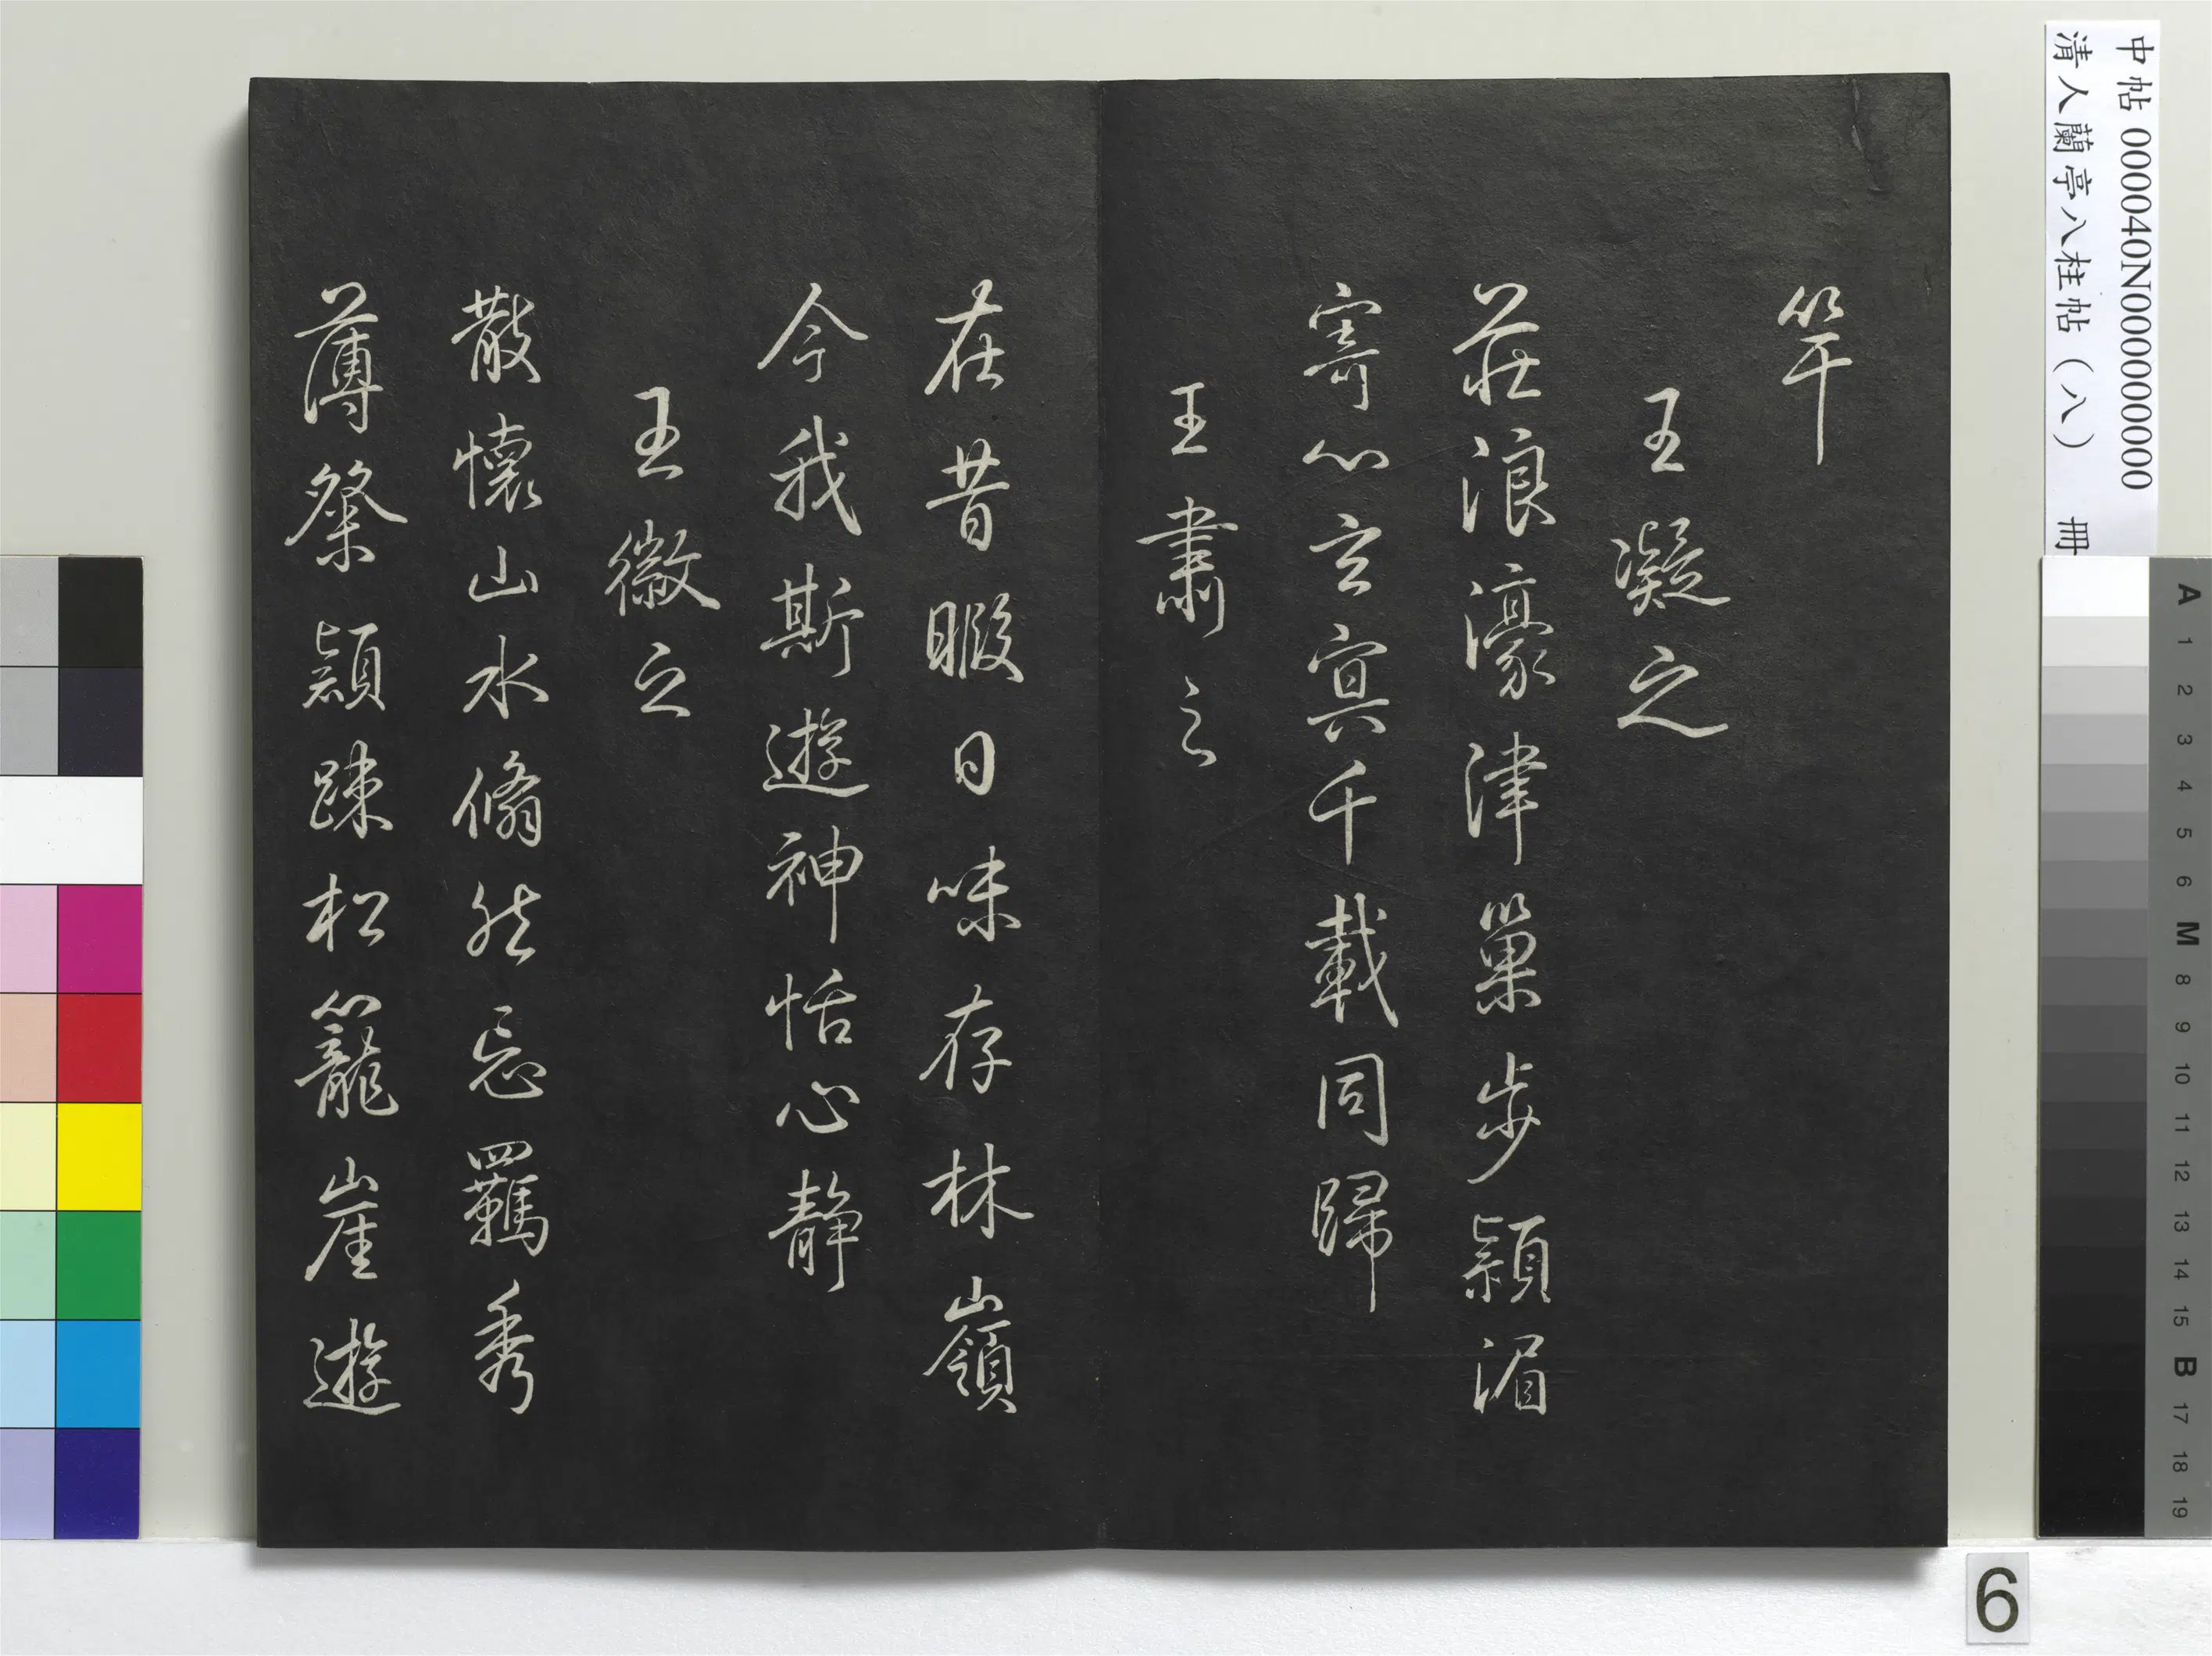 竿
王凝之
莊浪濠津巢步潁湄
寄心玄冥千載同歸
王肅之
在昔暇日味存林嶺
今我斯遊神恬心靜
王徽之
散懷山水翛然忘羈秀
薄粲穎踈松籠崖遊
中帖 000040N000000000
清人蘭亭八柱帖（八） 冊
A
1
2
3
4
5
6
M
8
9
10
11
12
13
14
15
B
17
18
19
6